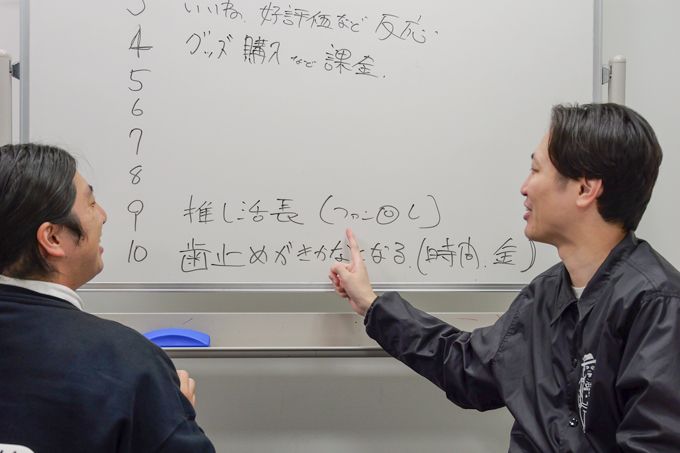 3 いいね、好評価など反応
4 グッズ購入など課金.
5
6
7
8
9 推し活長(ファン◎し)
10 歯止めがきかなくなる.(時間、金)